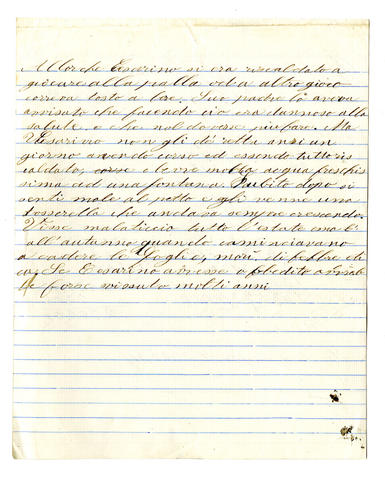 Allorche Cesarino si era riscaldato a
giocare alla palla od a altro gioco
correva tosto a bere. Suo padre lo aveva
avvisato che facendo ciò era dannoso alla
salute, e che nol doveva piu fare. Ma
Cesarino non gli dè retta anzi un
giorno avendo corso ed essendo tutto ris
caldato, corse e bevve molta acqua freschis
sima ad una fontana. Subito dopo si
sentì male al petto e gli venne una
tosserella che andava sempre crescendo.
Visse malaticcio tutto l'estate ma
all'autunno quando cominciavano
a cadere le foglie, morì di febbre eti
ca. Se Cesarino avesse obbedito avreb
be forse vissuto molti anni